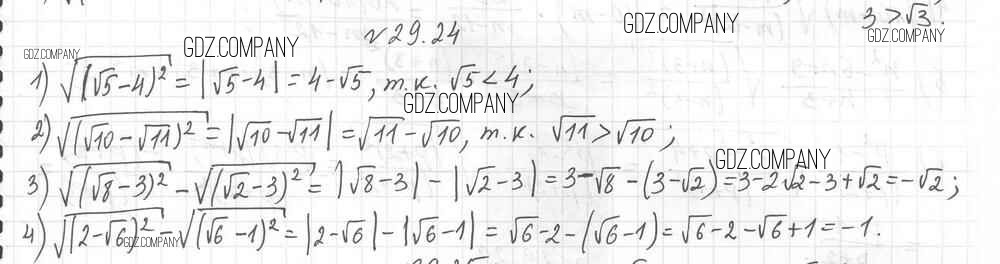 3 > √3.
GDZ.COMPANY
GDZ.COMPANY
№29.24
GDZ.COMPANY
GDZ.COMPANY
1) √(√5-4)² = |√5-4| = 4-√5, т.к. √5 < 4;
GDZ.COMPANY
2) √(√10-√11)² = |√10-√11| = √11-√10, т.к. √11 > √10;
GDZ.COMPANY
3) √(√8-3)² - √(√2-3)² = |√8-3| - |√2-3| = 3-√8-(3-√2) = 3-2√2-3+√2 = -√2;
4) √(2-√6)² - √(√6-1)² = |2-√6| - |√6-1| = √6-2-(√6-1) = √6-2-√6+1 = -1.
GDZ.COMPANY